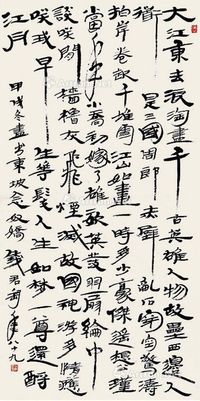 大江東去浪淘盡千古英雄人物故壘西邊人
道是三國周郎赤壁亂石穿空驚濤
拍岸卷起千堆雪江山如畫一時多少豪傑遙想公瑾
當年小喬初嫁了雄姿英發羽扇綸巾
談笑間檣櫓灰飛煙滅故國神游多情應
笑我早生華髮人生如夢一尊還酹
江月
甲戌冬盡書東坡念奴嬌 錢君匋年八十九